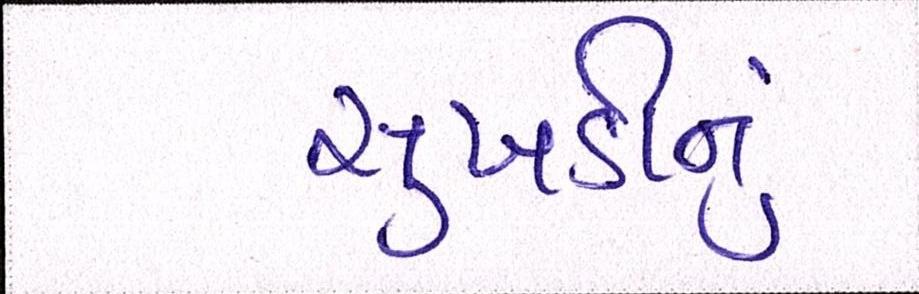 સુખડીનું